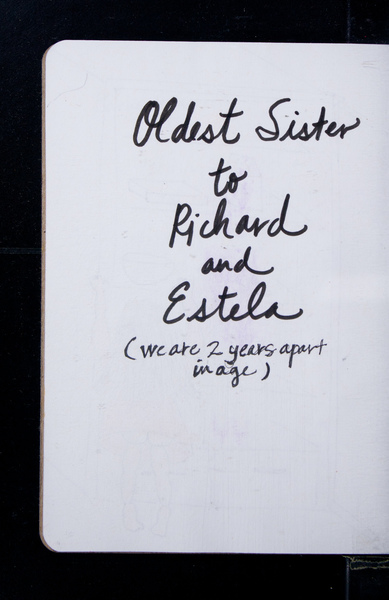 Oldest Sister
to
Richard
and
Estela
(we are 2 years apart
in age)